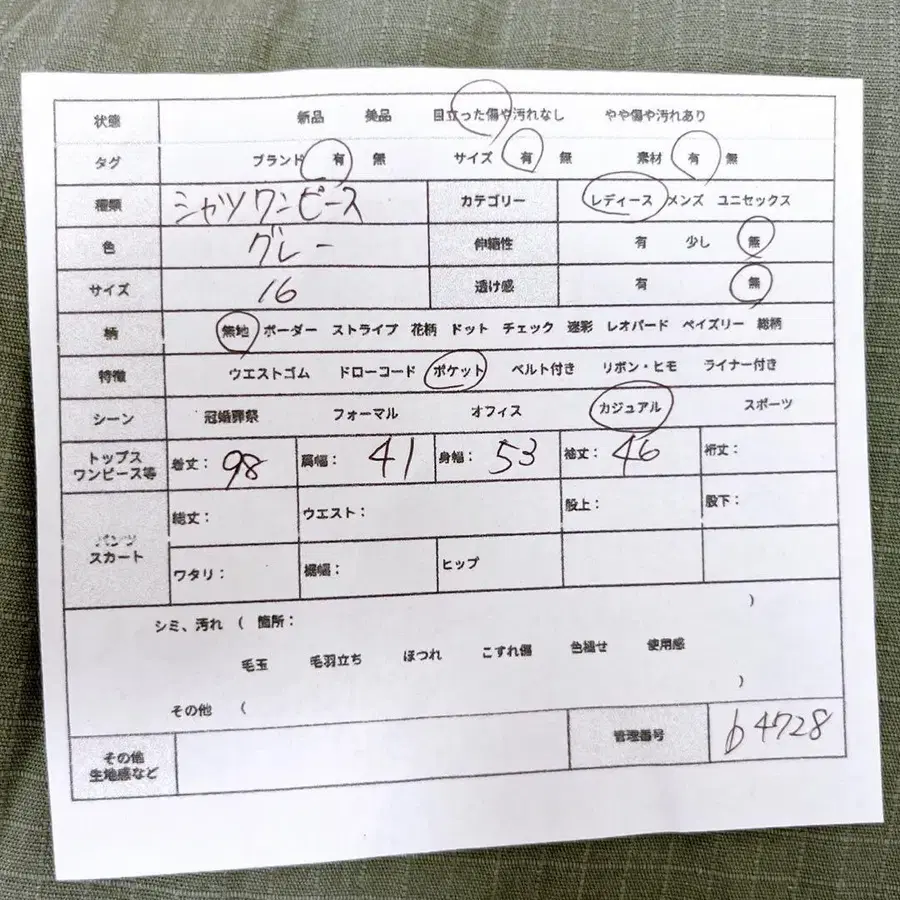 状態 新品 美品 目立った傷や汚れなし やや傷や汚れあり
タグ ブランド 有 無 サイズ 有 無 素材 有 無
種類 シャツワンピース カテゴリー レディース メンズ ユニセックス
色 グレー 伸縮性 有 少し 無
サイズ 16 透け感 有 無
柄 無地 ボーダー ストライプ 花柄 ドット チェック 迷彩 レオパード ペイズリー 総柄
特徴 ウエストゴム ドローコード ポケット ベルト付き リボン・ヒモ ライナー付き
シーン 冠婚葬祭 フォーマル オフィス カジュアル スポーツ
トップス
ワンピース等 着丈: 98 肩幅: 41 身幅: 53 袖丈: 46 裄丈:
パンツ
スカート
総丈: ウエスト: 股上: 股下:
ワタリ: 裾幅: ヒップ
シミ、汚れ ( 箇所: )
毛玉 毛羽立ち ほつれ こすれ傷 色褪せ 使用感
その他 ( )
その他
生地感など
管理番号 b4728